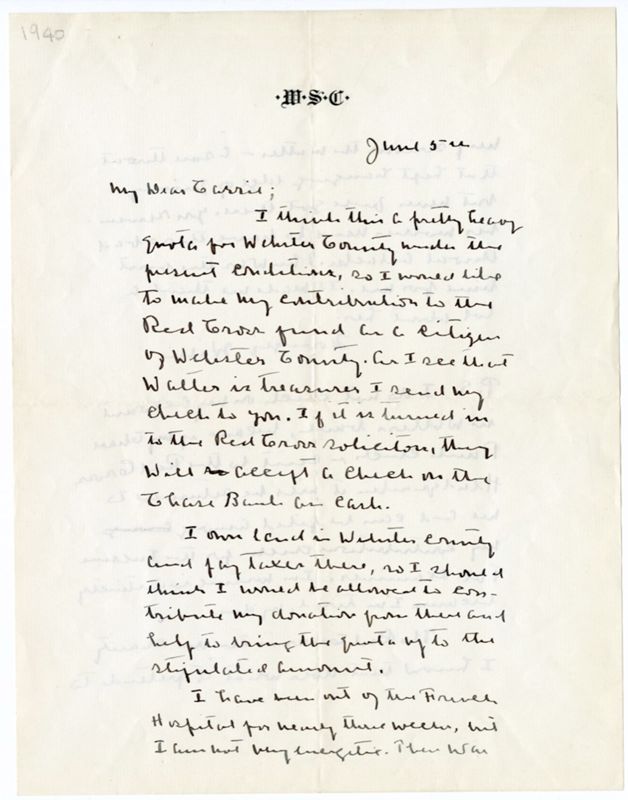 1940
·W·S·C·
June 5th
My Dear Carrie;
I think this a pretty heavy
quota for Webster County under the
present conditions, so I would like
to make my contribution to the
Red Cross fund as a citizen
of Webster County. As I see that
Walter is treasurer I send my
check to you. If it is turned in
to the Red Cross solicitors, they
will accept a check on the
Chase Bank as cash.
I own land in Webster County
and pay taxes there, so I should
think I would be allowed to con-
tribute my donation from there and
help to bring the quota up to the
stipulated amount.
I have been out of the French
Hospital for nearly three weeks, but
I am not very energetic. This war